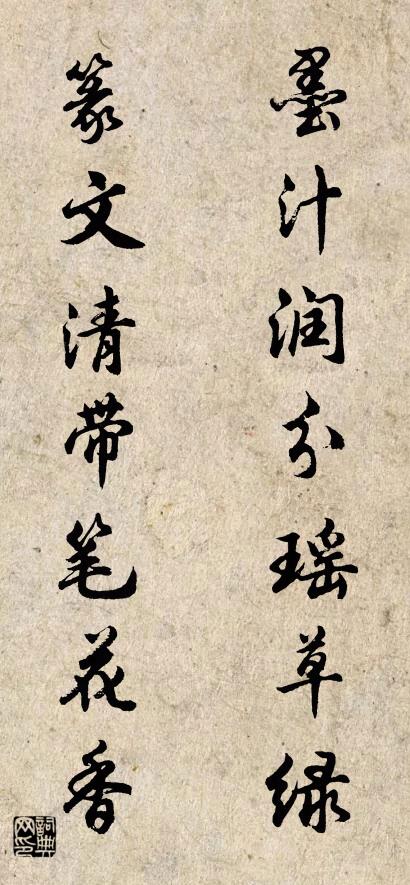 墨汁润分瑶草绿
篆文清带笔花香
词典网印